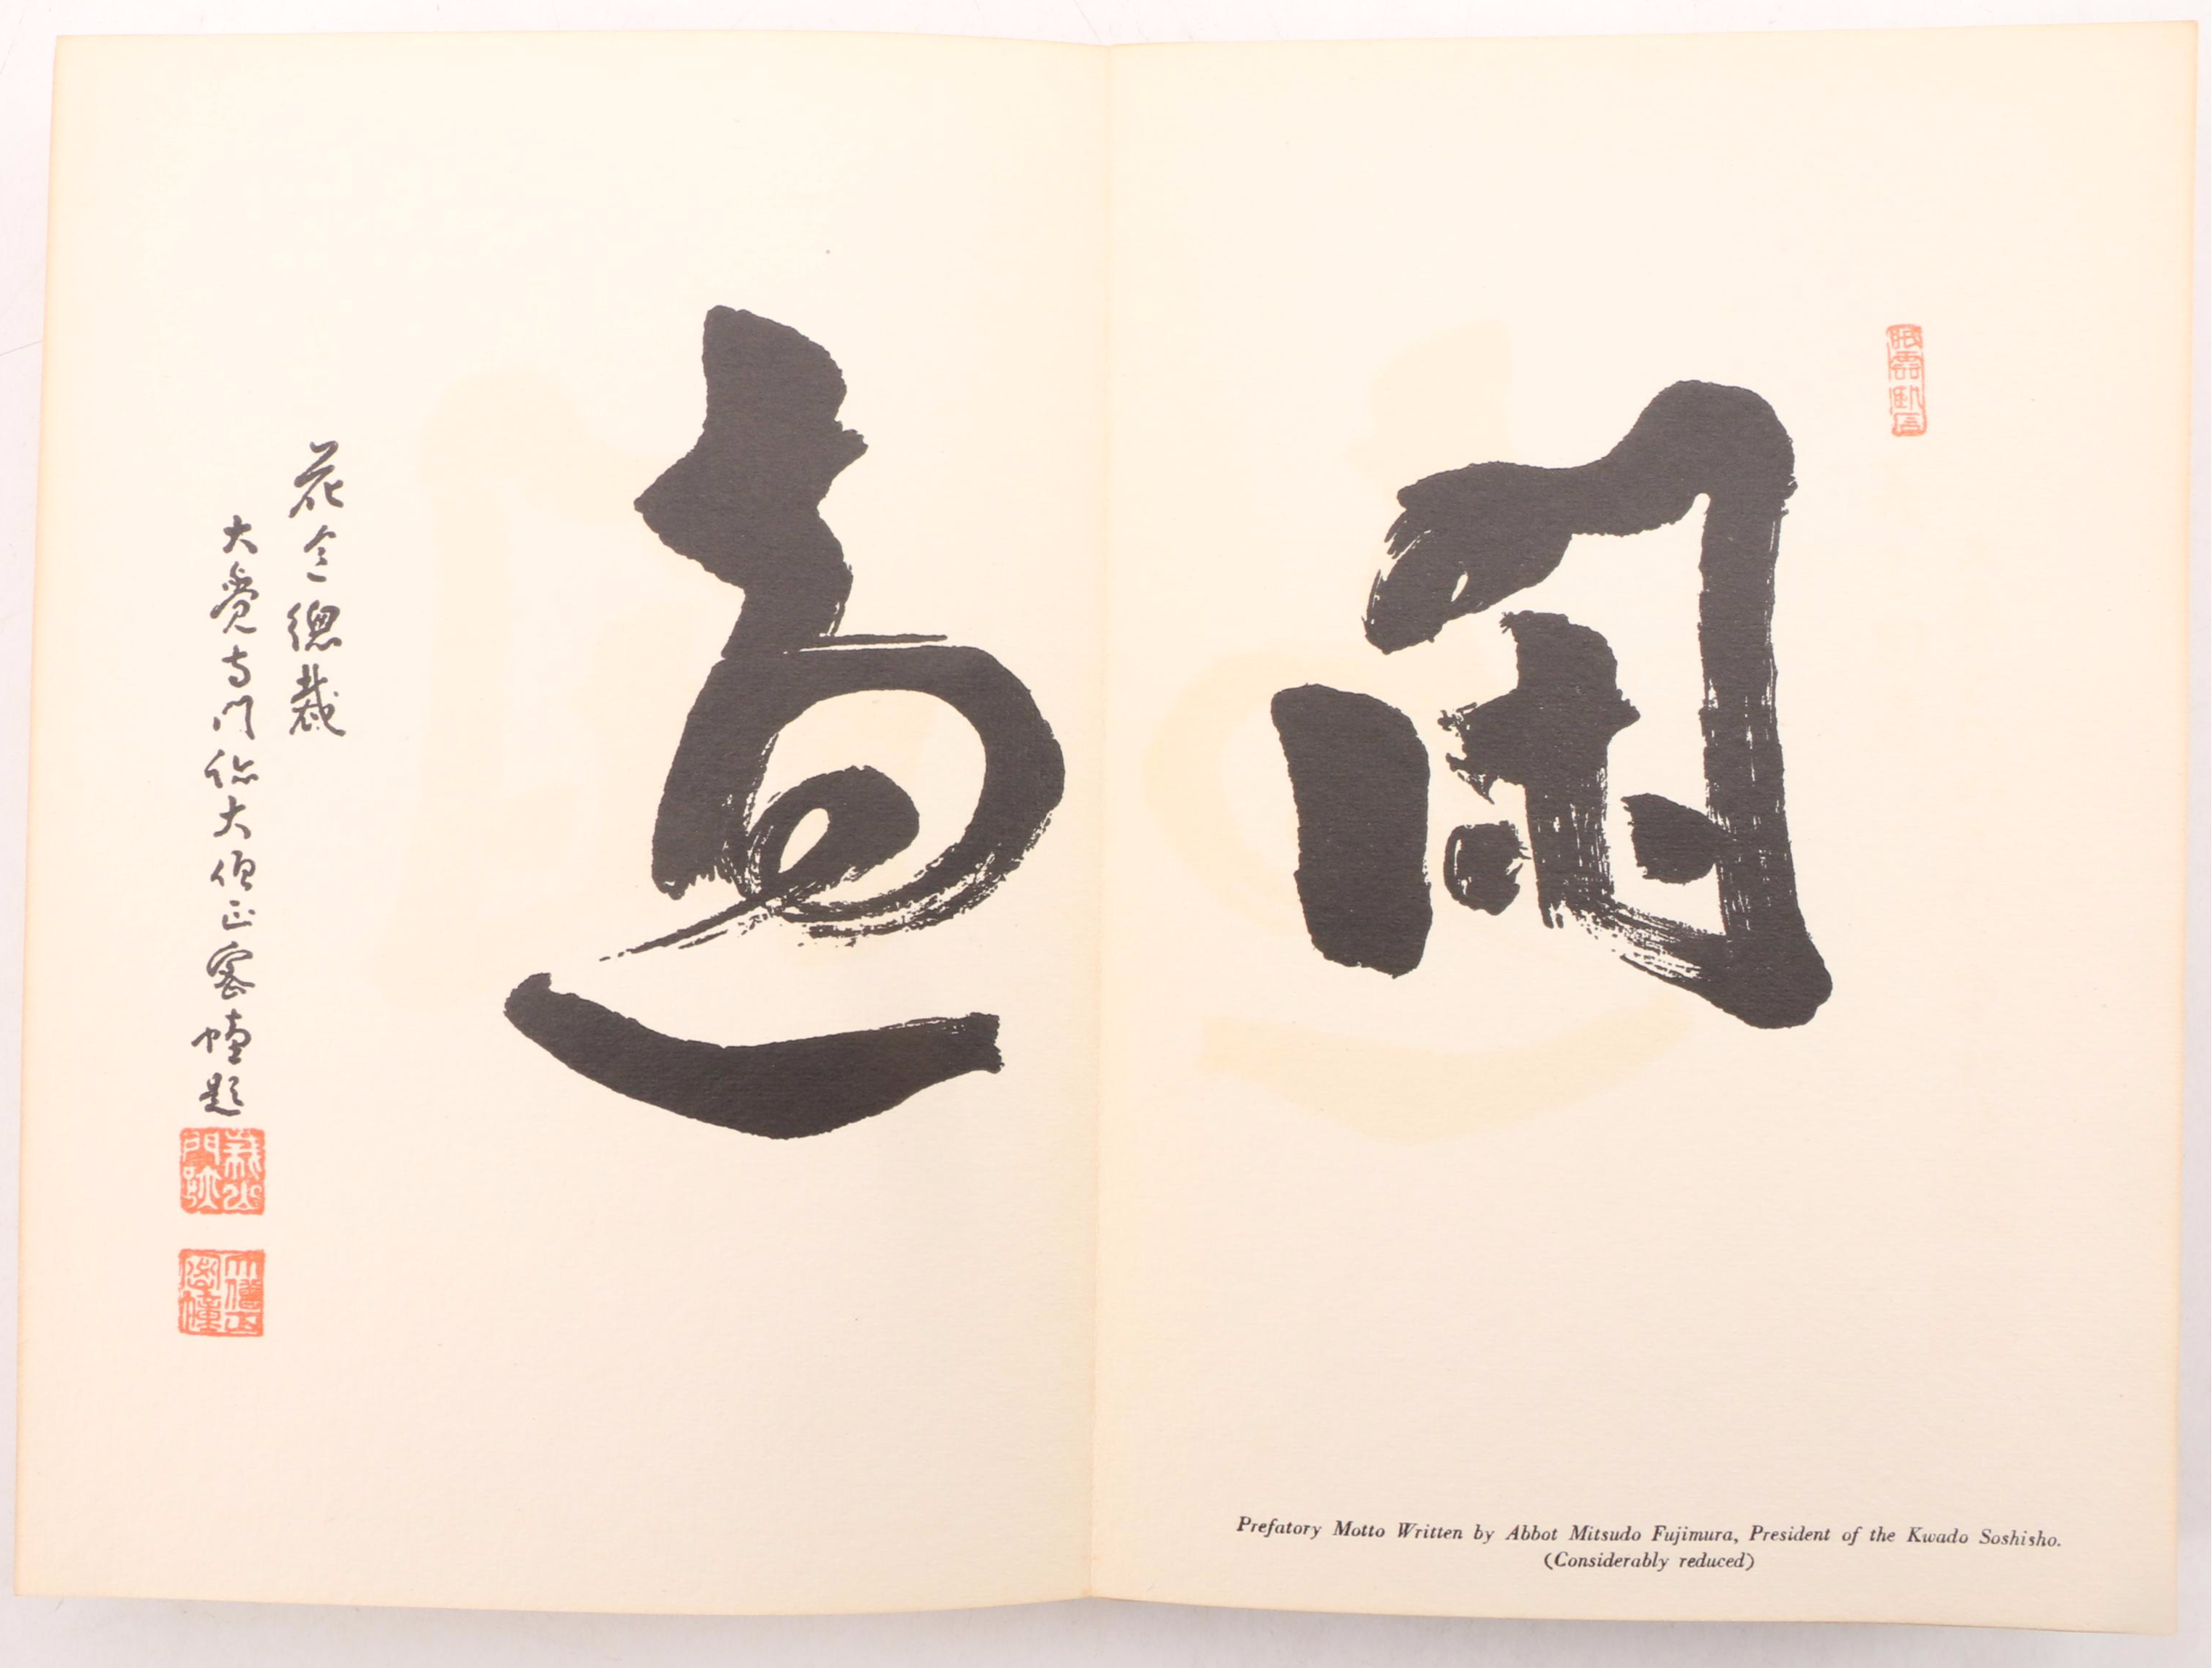 眠雲臥石
閑適
花会總裁
大覺寺門跡大僧正密幢題
門跡
大僧正密幢
Prefatory Motto Written by Abbot Mitsudo Fujimura, President of the Kwado Soshisho.
(Considerably reduced)